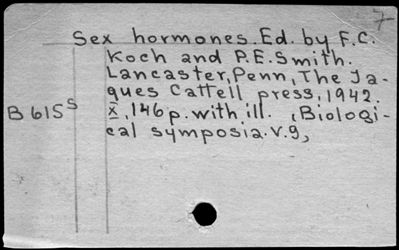 7
Sex hormones. Ed. by F.C.
Koch and P.E. Smith.
Lancaster, Penn, The Ja-
ques Cattell press, 1942.
B615s x, 146 p. with ill. (Biologi-
cal symposia. V. 9,